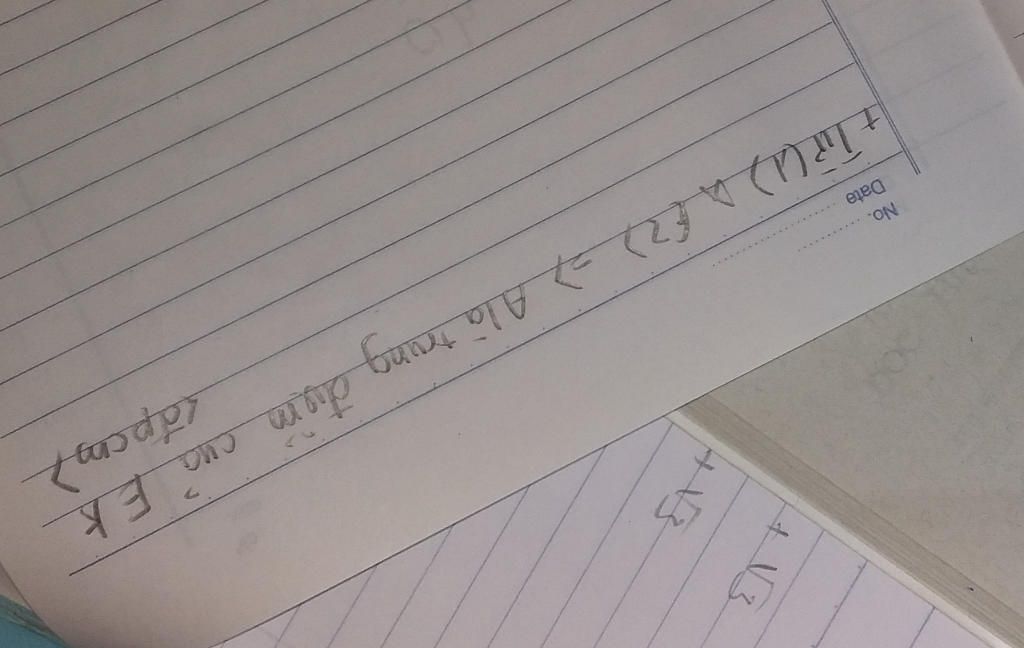 No.
Date
+ Từ (1) và (2) => A là trung điểm của EK
(đpcm)
+ √3
+ √3